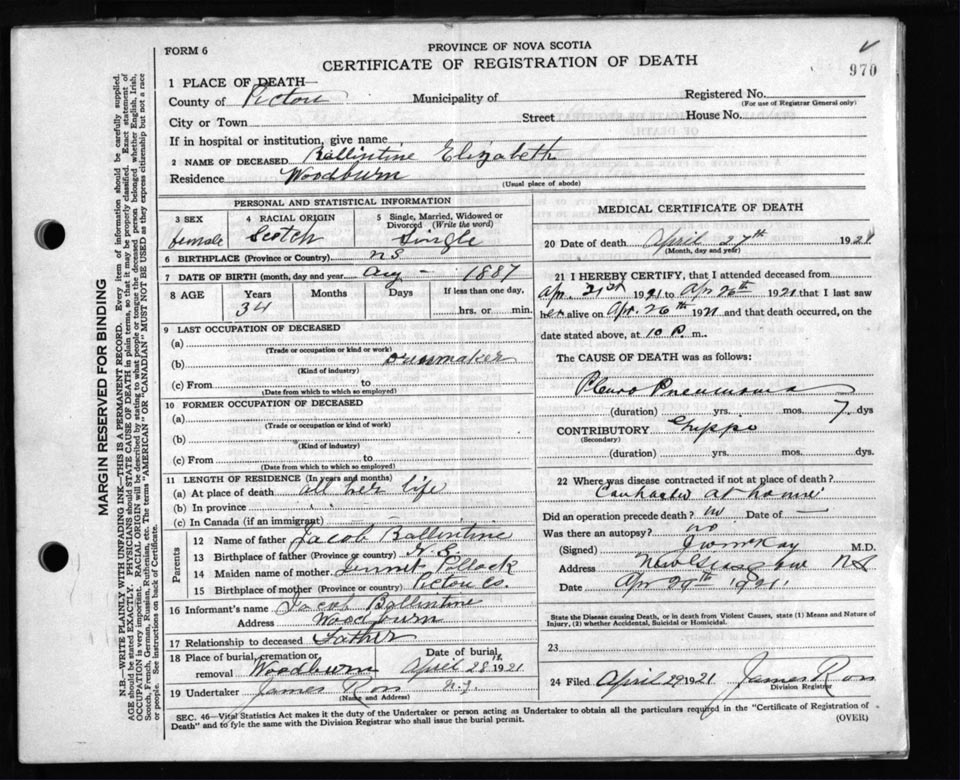 FORM 6
PROVINCE OF NOVA SCOTIA
CERTIFICATE OF REGISTRATION OF DEATH
970
1 PLACE OF DEATH—
County of Pictou Municipality of Registered No.
(For use of Registrar General only)
City or Town Street House No.
If in hospital or institution, give name
2 NAME OF DECEASED Ballintine Elizabeth
Residence Woodburn
(Usual place of abode)
PERSONAL AND STATISTICAL INFORMATION
3 SEX 4 RACIAL ORIGIN 5 Single, Married, Widowed or Divorced (Write the word)
female Scotch Single
6 BIRTHPLACE (Province or Country) NS
7 DATE OF BIRTH (month, day and year) Aug — 1887
8 AGE Years Months Days If less than one day,
34 hrs. or min.
9 LAST OCCUPATION OF DECEASED
(a)
(Trade or occupation or kind of work)
(b) Dressmaker
(Kind of industry)
(c) From to
(Date from which to which so employed)
10 FORMER OCCUPATION OF DECEASED
(a)
(Trade or occupation or kind of work)
(b)
(Kind of industry)
(c) From to
(Date from which to which so employed)
11 LENGTH OF RESIDENCE (In years and months)
(a) At place of death all her life
(b) In province
(c) In Canada (if an immigrant)
Parents
12 Name of father Jacob Ballentine
13 Birthplace of father (Province or country) N.S.
14 Maiden name of mother Jennet Pollock
15 Birthplace of mother (Province or country) Pictou Co.
16 Informant's name Jacob Ballentine
Address Woodburn
17 Relationship to deceased Father
18 Place of burial, cremation or removal Woodburn Date of burial April 28th 1921
19 Undertaker James Ross
(Name and Address)
MEDICAL CERTIFICATE OF DEATH
20 Date of death April 27th 1921
(Month, day and year)
21 I HEREBY CERTIFY, that I attended deceased from
Apr. 21st 1921 to Apr 26th 1921 that I last saw
her alive on Apr. 26th 1921 and that death occurred, on
date stated above, at 10 P. m.
The CAUSE OF DEATH was as follows:
Pleuro Pneumonia
(duration) yrs. mos. 7 dys
CONTRIBUTORY Grippe
(Secondary)
(duration) yrs. mos. dys.
22 Where was disease contracted if not at place of death?
Contracted at home
Did an operation precede death? no Date of —
Was there an autopsy? no
(Signed) M.D.
Address New Glasgow NS
Date Apr 29th 1921
State the Disease causing Death, or in death from Violent Causes, state (1) Means and Nature of
Injury, (2) whether Accidental, Suicidal or Homicidal.
23
24 Filed April 29 1921 James Ross
Division Registrar
SEC. 46—Vital Statistics Act makes it the duty of the Undertaker or person acting as Undertaker to obtain all the particulars required in the "Certificate of Registration of
Death" and to fyle the same with the Division Registrar who shall issue the burial permit. (OVER)
MARGIN RESERVED FOR BINDING
N.B.—WRITE PLAINLY WITH UNFADING INK—THIS IS A PERMANENT RECORD. Every item of information should be carefully supplied.
AGE should be stated EXACTLY. PHYSICIANS should STATE CAUSE OF DEATH in plain terms, so that it may be properly classified. Exact statement of
OCCUPATION is very important. RACIAL ORIGIN will be described by stating to what people or tongue the deceased person belonged whether English, Irish,
Scotch, French, German, Russian, Ruthenian, etc. The terms "AMERICAN" or "CANADIAN" MUST NOT BE USED as they express citizenship but not a race
or people. See instructions on back of Certificate.